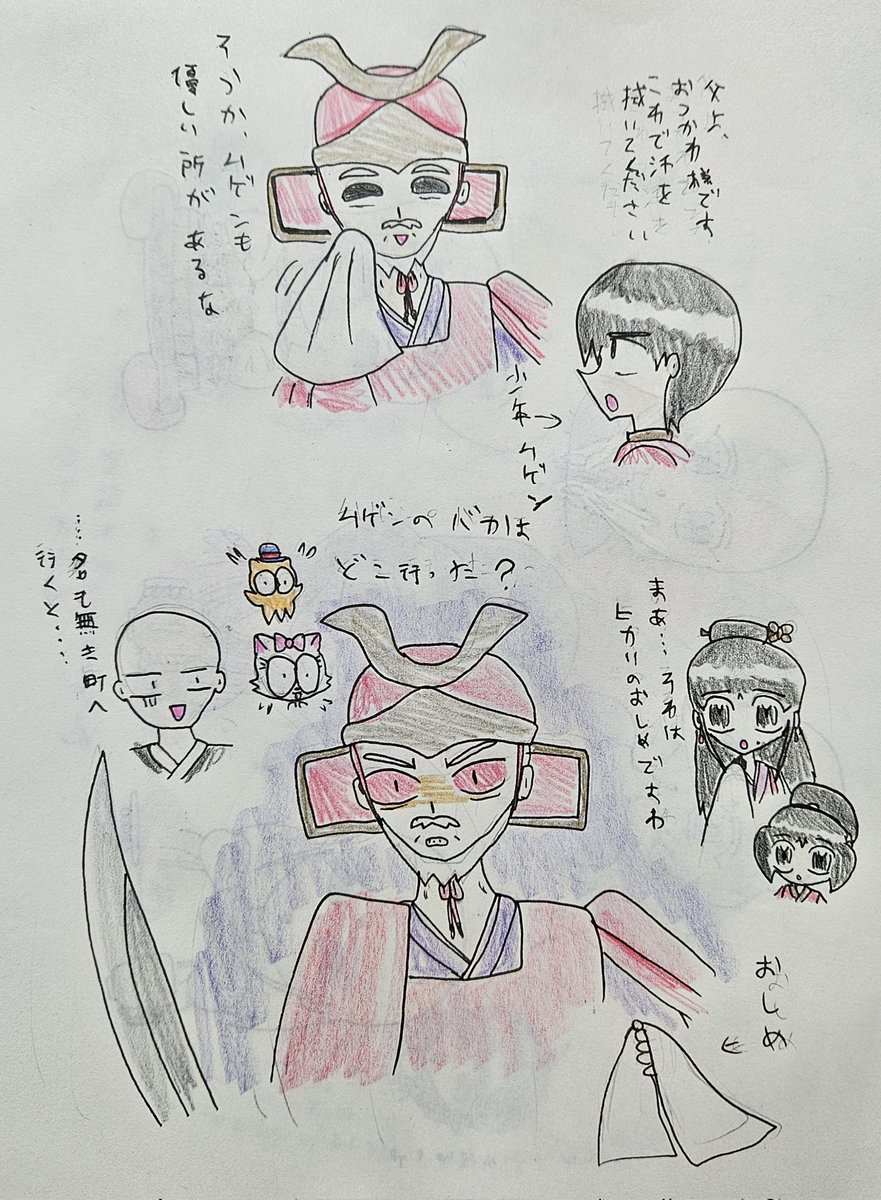 父上、
おつかれ様です
これで汗を
拭いてください
そうか、ムゲンも
優しい所が
あるな
少年ムゲン
ムゲンのバカは
どこ行った?
まあ…それは
ヒカリのおしめですわ
……名も無き町へ
行くと……
おしめ